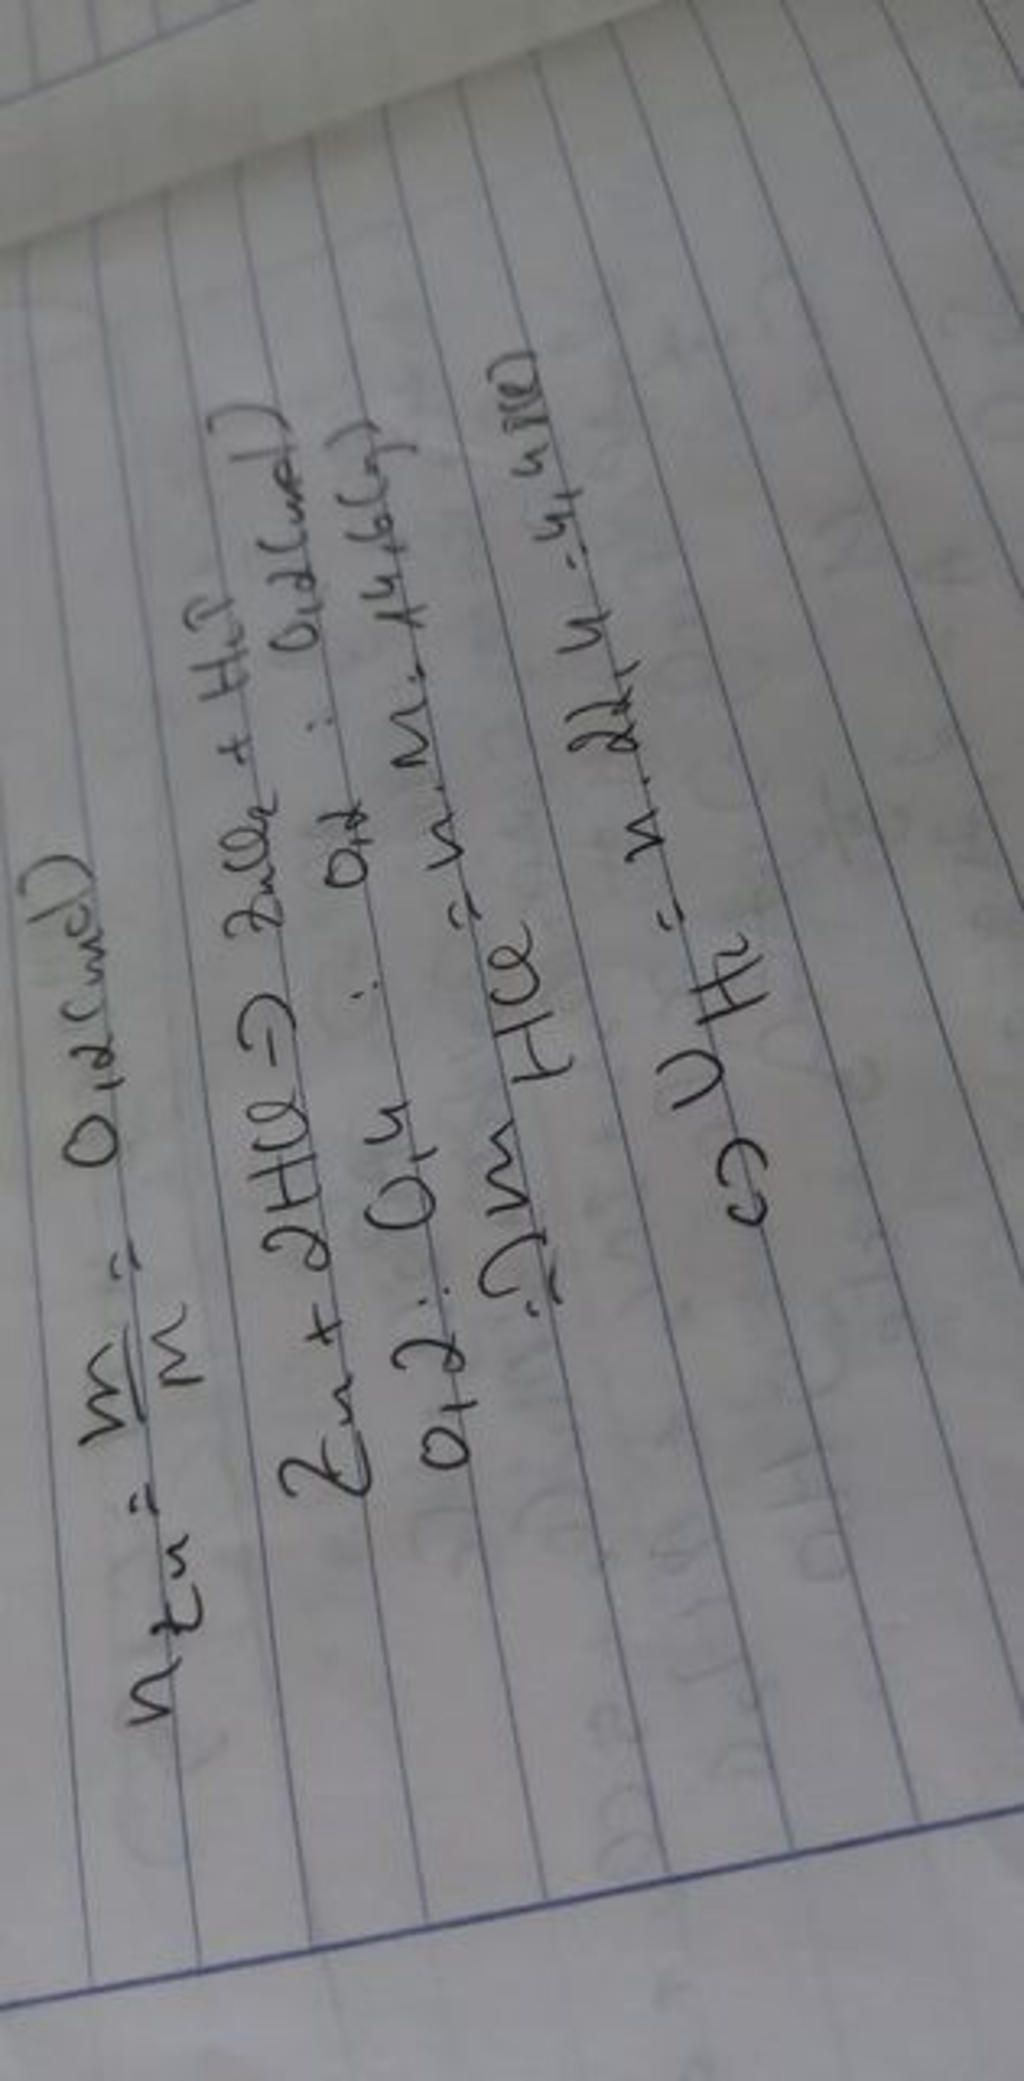 nZn = m/M = 0,2(mol)
Zn + 2HCl → ZnCl2 + H2↑
0,2 : 0,4 : 0,2 : 0,2(mol)
=> m HCl = n.M = 14,6(g)
c) V H2 = n.22,4 = 4,48(l)